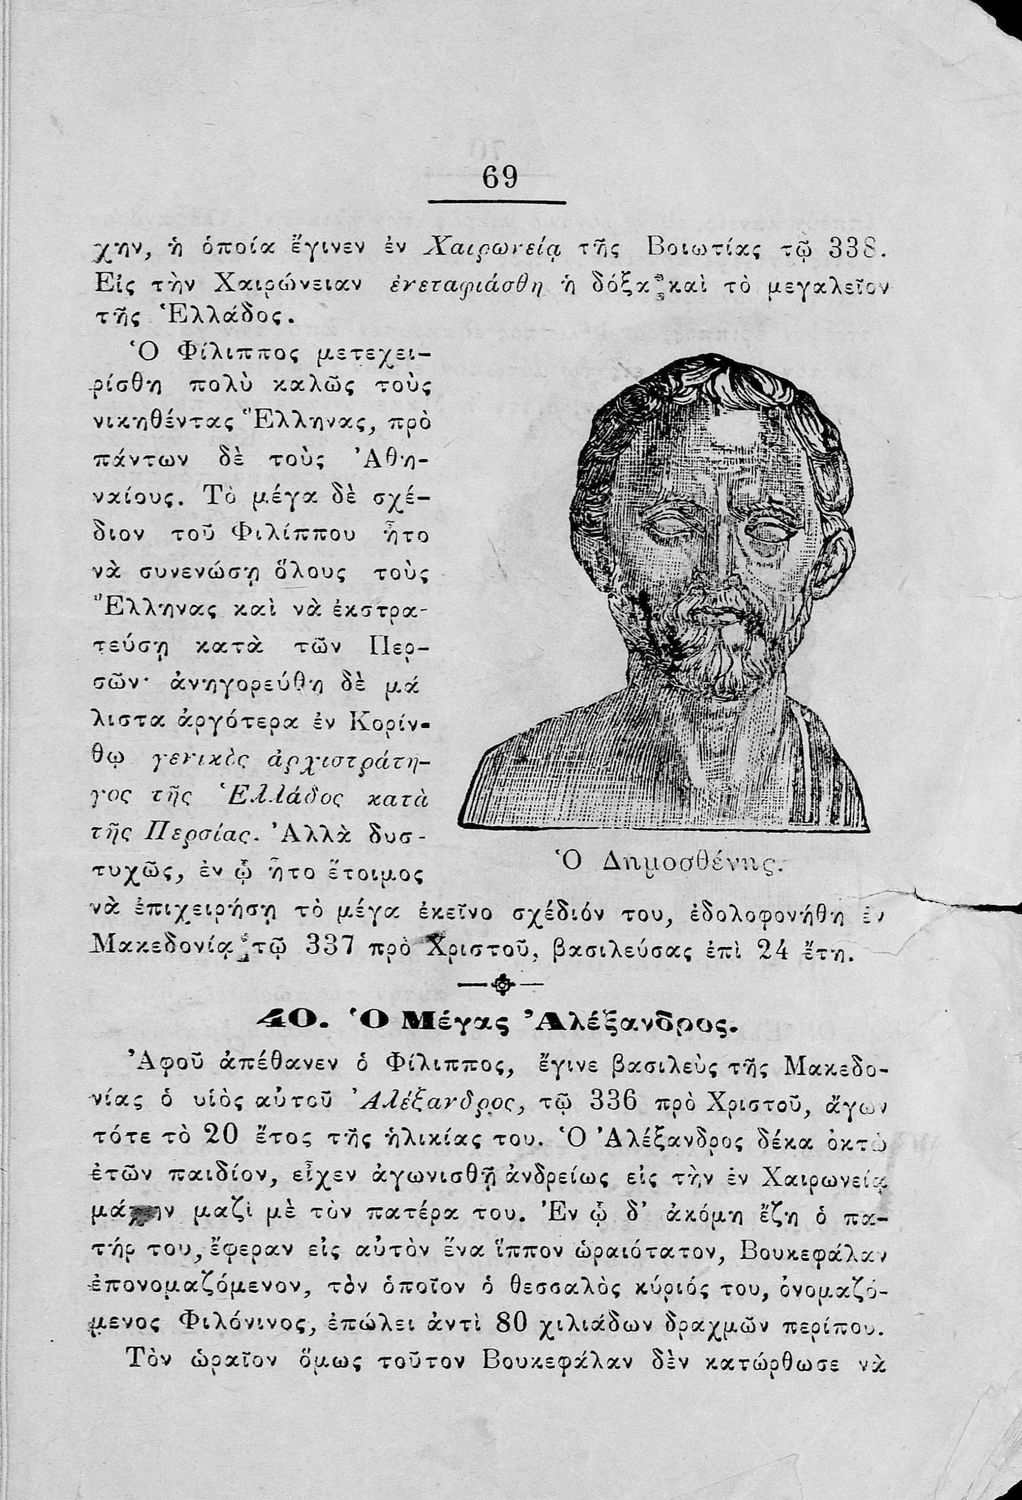 69
χην, ἡ ὁποία ἔγινεν ἐν Χαιρωνείᾳ τῆς Βοιωτίας τῷ 338.
Εἰς τὴν Χαιρώνειαν ἐνεταφιάσθη ἡ δόξα καὶ τὸ μεγαλεῖον
τῆς Ἑλλάδος.
Ὁ Φίλιππος μετεχει-
ρίσθη πολὺ καλῶς τοὺς
νικηθέντας Ἕλληνας, πρὸ
πάντων δὲ τοὺς Ἀθη-
ναίους. Τὸ μέγα δὲ σχέ-
διον τοῦ Φιλίππου ἦτο
νὰ συνενώσῃ ὅλους τοὺς
Ἕλληνας καὶ νὰ ἐκστρα-
τεύσῃ κατὰ τῶν Περ-
σῶν· ἀνηγορεύθη δὲ μά
λιστα ἀργότερα ἐν Κορίν-
θῳ γενικὸς ἀρχιστράτη-
γος τῆς Ἑλλάδος κατὰ
τῆς Περσίας. Ἀλλὰ δυσ-
τυχῶς, ἐν ᾧ ἦτο ἕτοιμος
Ὁ Δημοσθένης.
νὰ ἐπιχειρήσῃ τὸ μέγα ἐκεῖνο σχέδιόν του, ἐδολοφονήθη ἐν
Μακεδονίᾳ τῷ 337 πρὸ Χριστοῦ, βασιλεύσας ἐπὶ 24 ἔτη.
40. Ὁ Μέγας Ἀλέξανδρος.
Ἀφοῦ ἀπέθανεν ὁ Φίλιππος, ἔγινε βασιλεὺς τῆς Μακεδο-
νίας ὁ υἱὸς αὐτοῦ Ἀλέξανδρος, τῷ 336 πρὸ Χριστοῦ, ἄγων
τότε τὸ 20 ἔτος τῆς ἡλικίας του. Ὁ Ἀλέξανδρος δέκα ὀκτὼ
ἐτῶν παιδίον, εἶχεν ἀγωνισθῆ ἀνδρείως εἰς τὴν ἐν Χαιρωνείᾳ
μάχην μαζὶ μὲ τὸν πατέρα του. Ἐν ᾧ δ' ἀκόμη ἔζη ὁ πα-
τήρ του, ἔφεραν εἰς αὐτὸν ἕνα ἵππον ὡραιότατον, Βουκεφάλαν
ἐπονομαζόμενον, τὸν ὁποῖον ὁ θεσσαλὸς κύριός του, ὀνομαζό-
μενος Φιλόνινος, ἐπώλει ἀντὶ 80 χιλιάδων δραχμῶν περίπου.
Τὸν ὡραῖον ὅμως τοῦτον Βουκεφάλαν δὲν κατώρθωσε νὰ